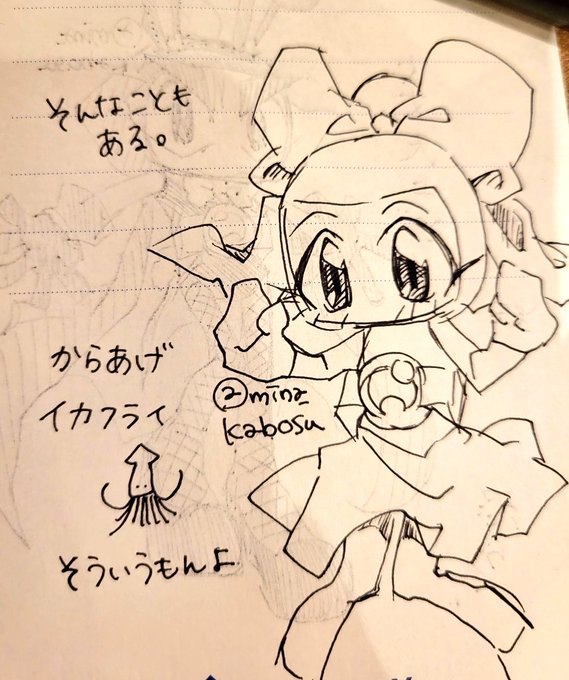 そんなことも
ある。
からあげ
イカフライ
そういうもんよ
@mina
kabosu